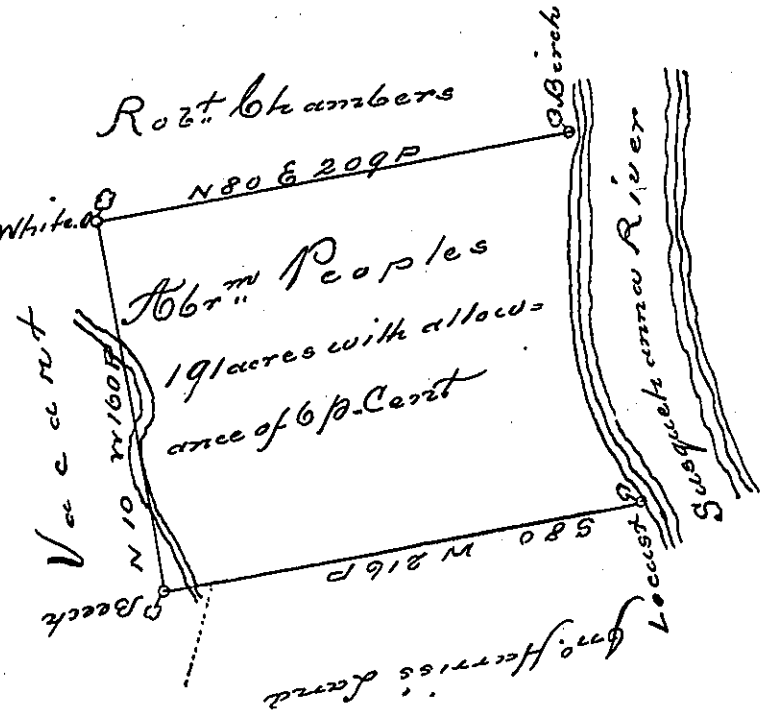 Robt. Chambers
Birch
N 80 E 209 P
White. o
Abrm Peoples
191 acres with allow=
ance of 6 p. Cent
Vacant
N 10 W 160 P
Susquehanna River
Locust
S 80 W 216 P
Beech
Jno. Harriss Land